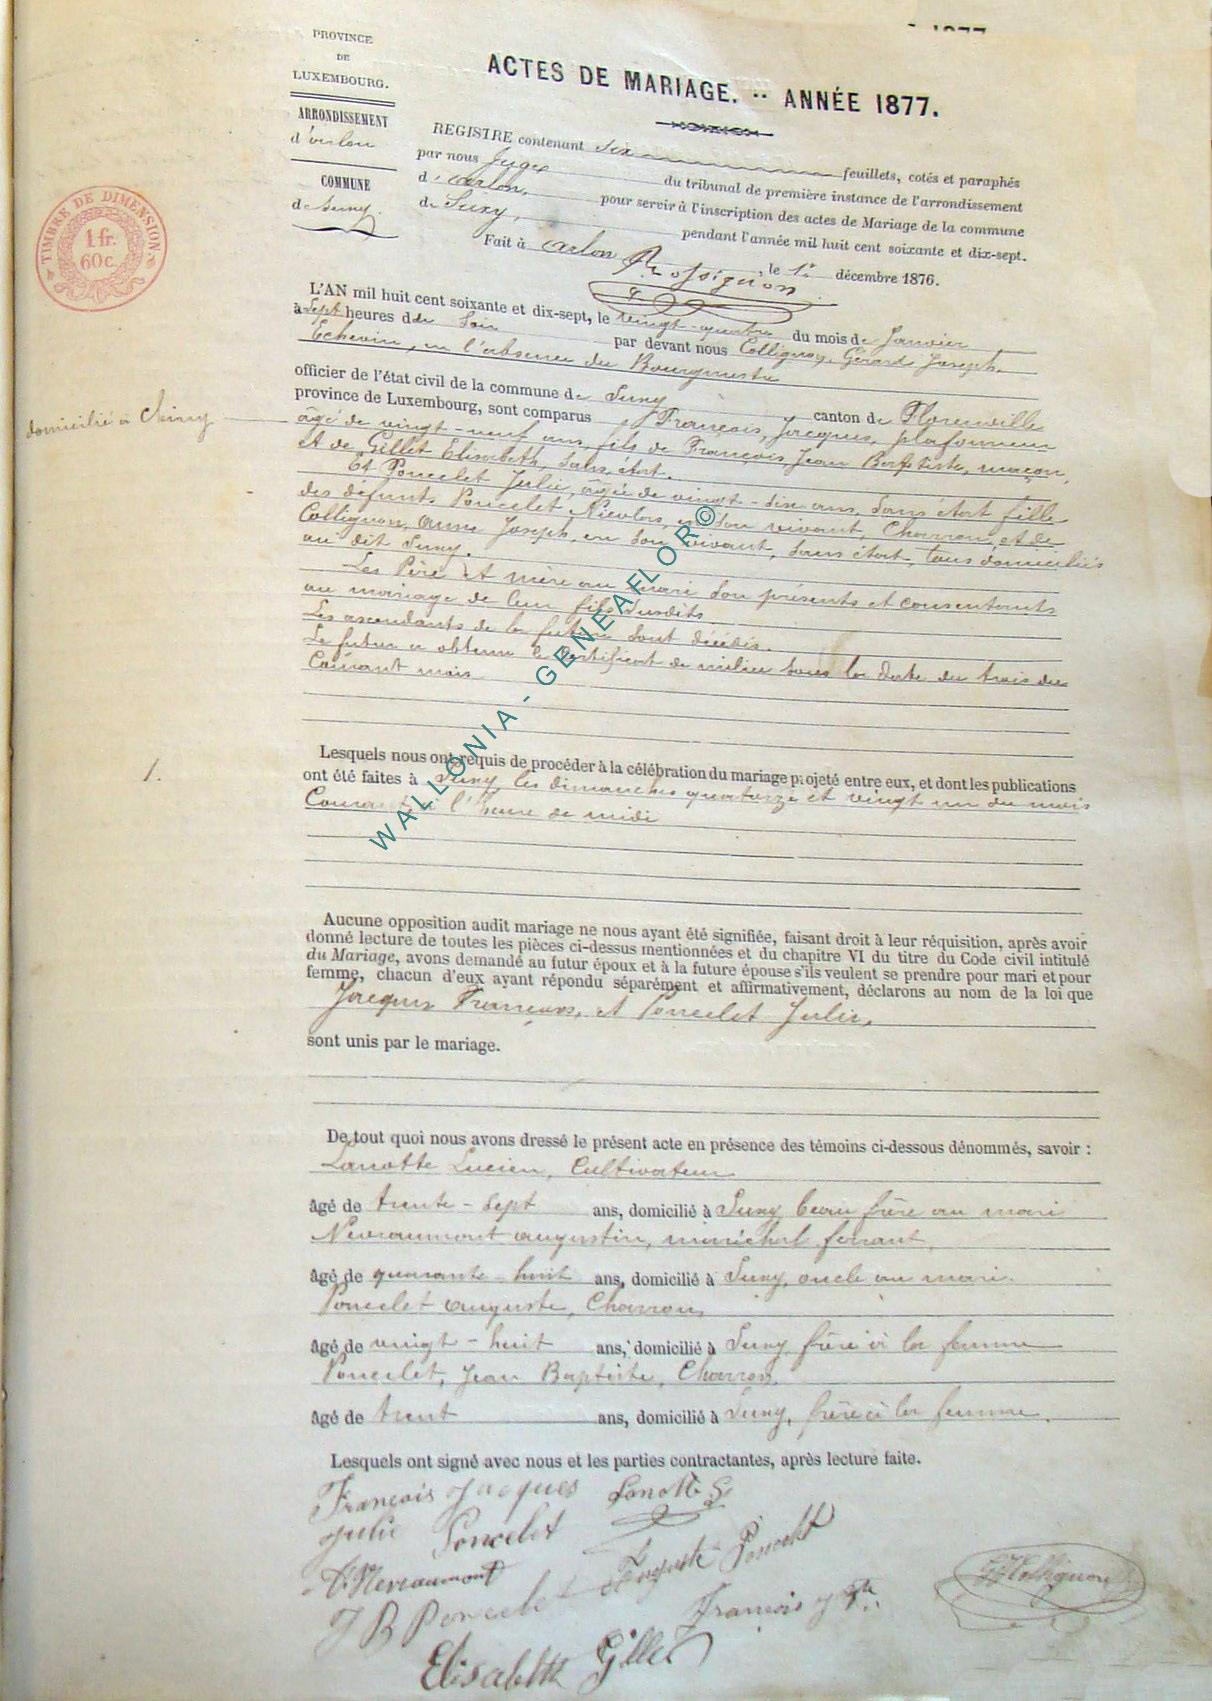 PROVINCE
DE
LUXEMBOURG.
ARRONDISSEMENT
d'arlon
COMMUNE
de Suxy.
TIMBRE DE DIMENSION
1 fr.
60 c.
1877
ACTES DE MARIAGE. .. ANNÉE 1877.
REGISTRE contenant six feuillets, cotés et paraphés
par nous Juge du tribunal de première instance de l'arrondissement
d'arlon, pour servir à l'inscription des actes de Mariage de la commune
de Suxy, pendant l'année mil huit cent soixante et dix-sept.
Fait à arlon, le 1er décembre 1876.
Rossignon
L'AN mil huit cent soixante et dix-sept, le vingt-quatre du mois de Janvier
à Sept heures du Soir par devant nous Collignon, Gérard Joseph,
Echevin, en l'absence du Bourgmestre
officier de l'état civil de la commune de Suxy canton de Florenville
province de Luxembourg, sont comparus François, Jacques, plafonneur
domicilié à Chiny
âgé de vingt-neuf ans, fils de François, Jean Baptiste, maçon,
et de Gillet Elisabeth, Sans état.
Et Poncelet Julie, âgée de vingt-six ans, Sans état fille
des défunts Poncelet Nicolas, en son vivant, Charron, et de
Collignon, anne Joseph, en son vivant, Sans état, tous domiciliés
au dit Suxy.
Les Père et mère au mari son présents et consentants
au mariage de leur fils Susdits.
Les ascendants de la future sont décédés.
Le futur a obtenu le Certificat de milice sous la date du trois du
Courant mois
1.
Lesquels nous ont requis de procéder à la célébration du mariage projeté entre eux, et dont les publications
ont été faites à Suxy les dimanches quatorze et vingt un du mois
Courant à l'heure de midi
Aucune opposition audit mariage ne nous ayant été signifiée, faisant droit à leur réquisition, après avoir
donné lecture de toutes les pièces ci-dessus mentionnées et du chapitre VI du titre du Code civil intitulé
du Mariage, avons demandé au futur époux et à la future épouse s'ils veulent se prendre pour mari et pour
femme, chacun d'eux ayant répondu séparément et affirmativement, déclarons au nom de la loi que
Jacques François, et Poncelet Julie,
sont unis par le mariage.
De tout quoi nous avons dressé le présent acte en présence des témoins ci-dessous dénommés, savoir :
Lanotte Lucien, Cultivateur
âgé de trente-sept ans, domicilié à Suxy beau frère au mari
Nevraumont augustin, maréchal ferrant,
âgé de quarante-huit ans, domicilié à Suxy, oncle au mari.
Poncelet auguste, Charron,
âgé de vingt-huit ans, domicilié à Suxy frère à la femme
Poncelet, Jean Baptiste, Charron,
âgé de trent ans, domicilié à Suxy, frère à la femme.
Lesquels ont signé avec nous et les parties contractantes, après lecture faite.
François Jacques Lanotte
Julie Poncelet
A. Nevraumont Auguste Poncelet
J B Poncelet François J Bte G J Collignon
Elisabeth Gillet
WALLONIA - GENEAFLOR ©